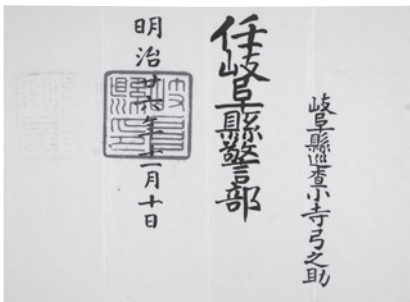 岐阜縣巡査小寺弓之助
任岐阜縣警部
明治廿六年十一月十日